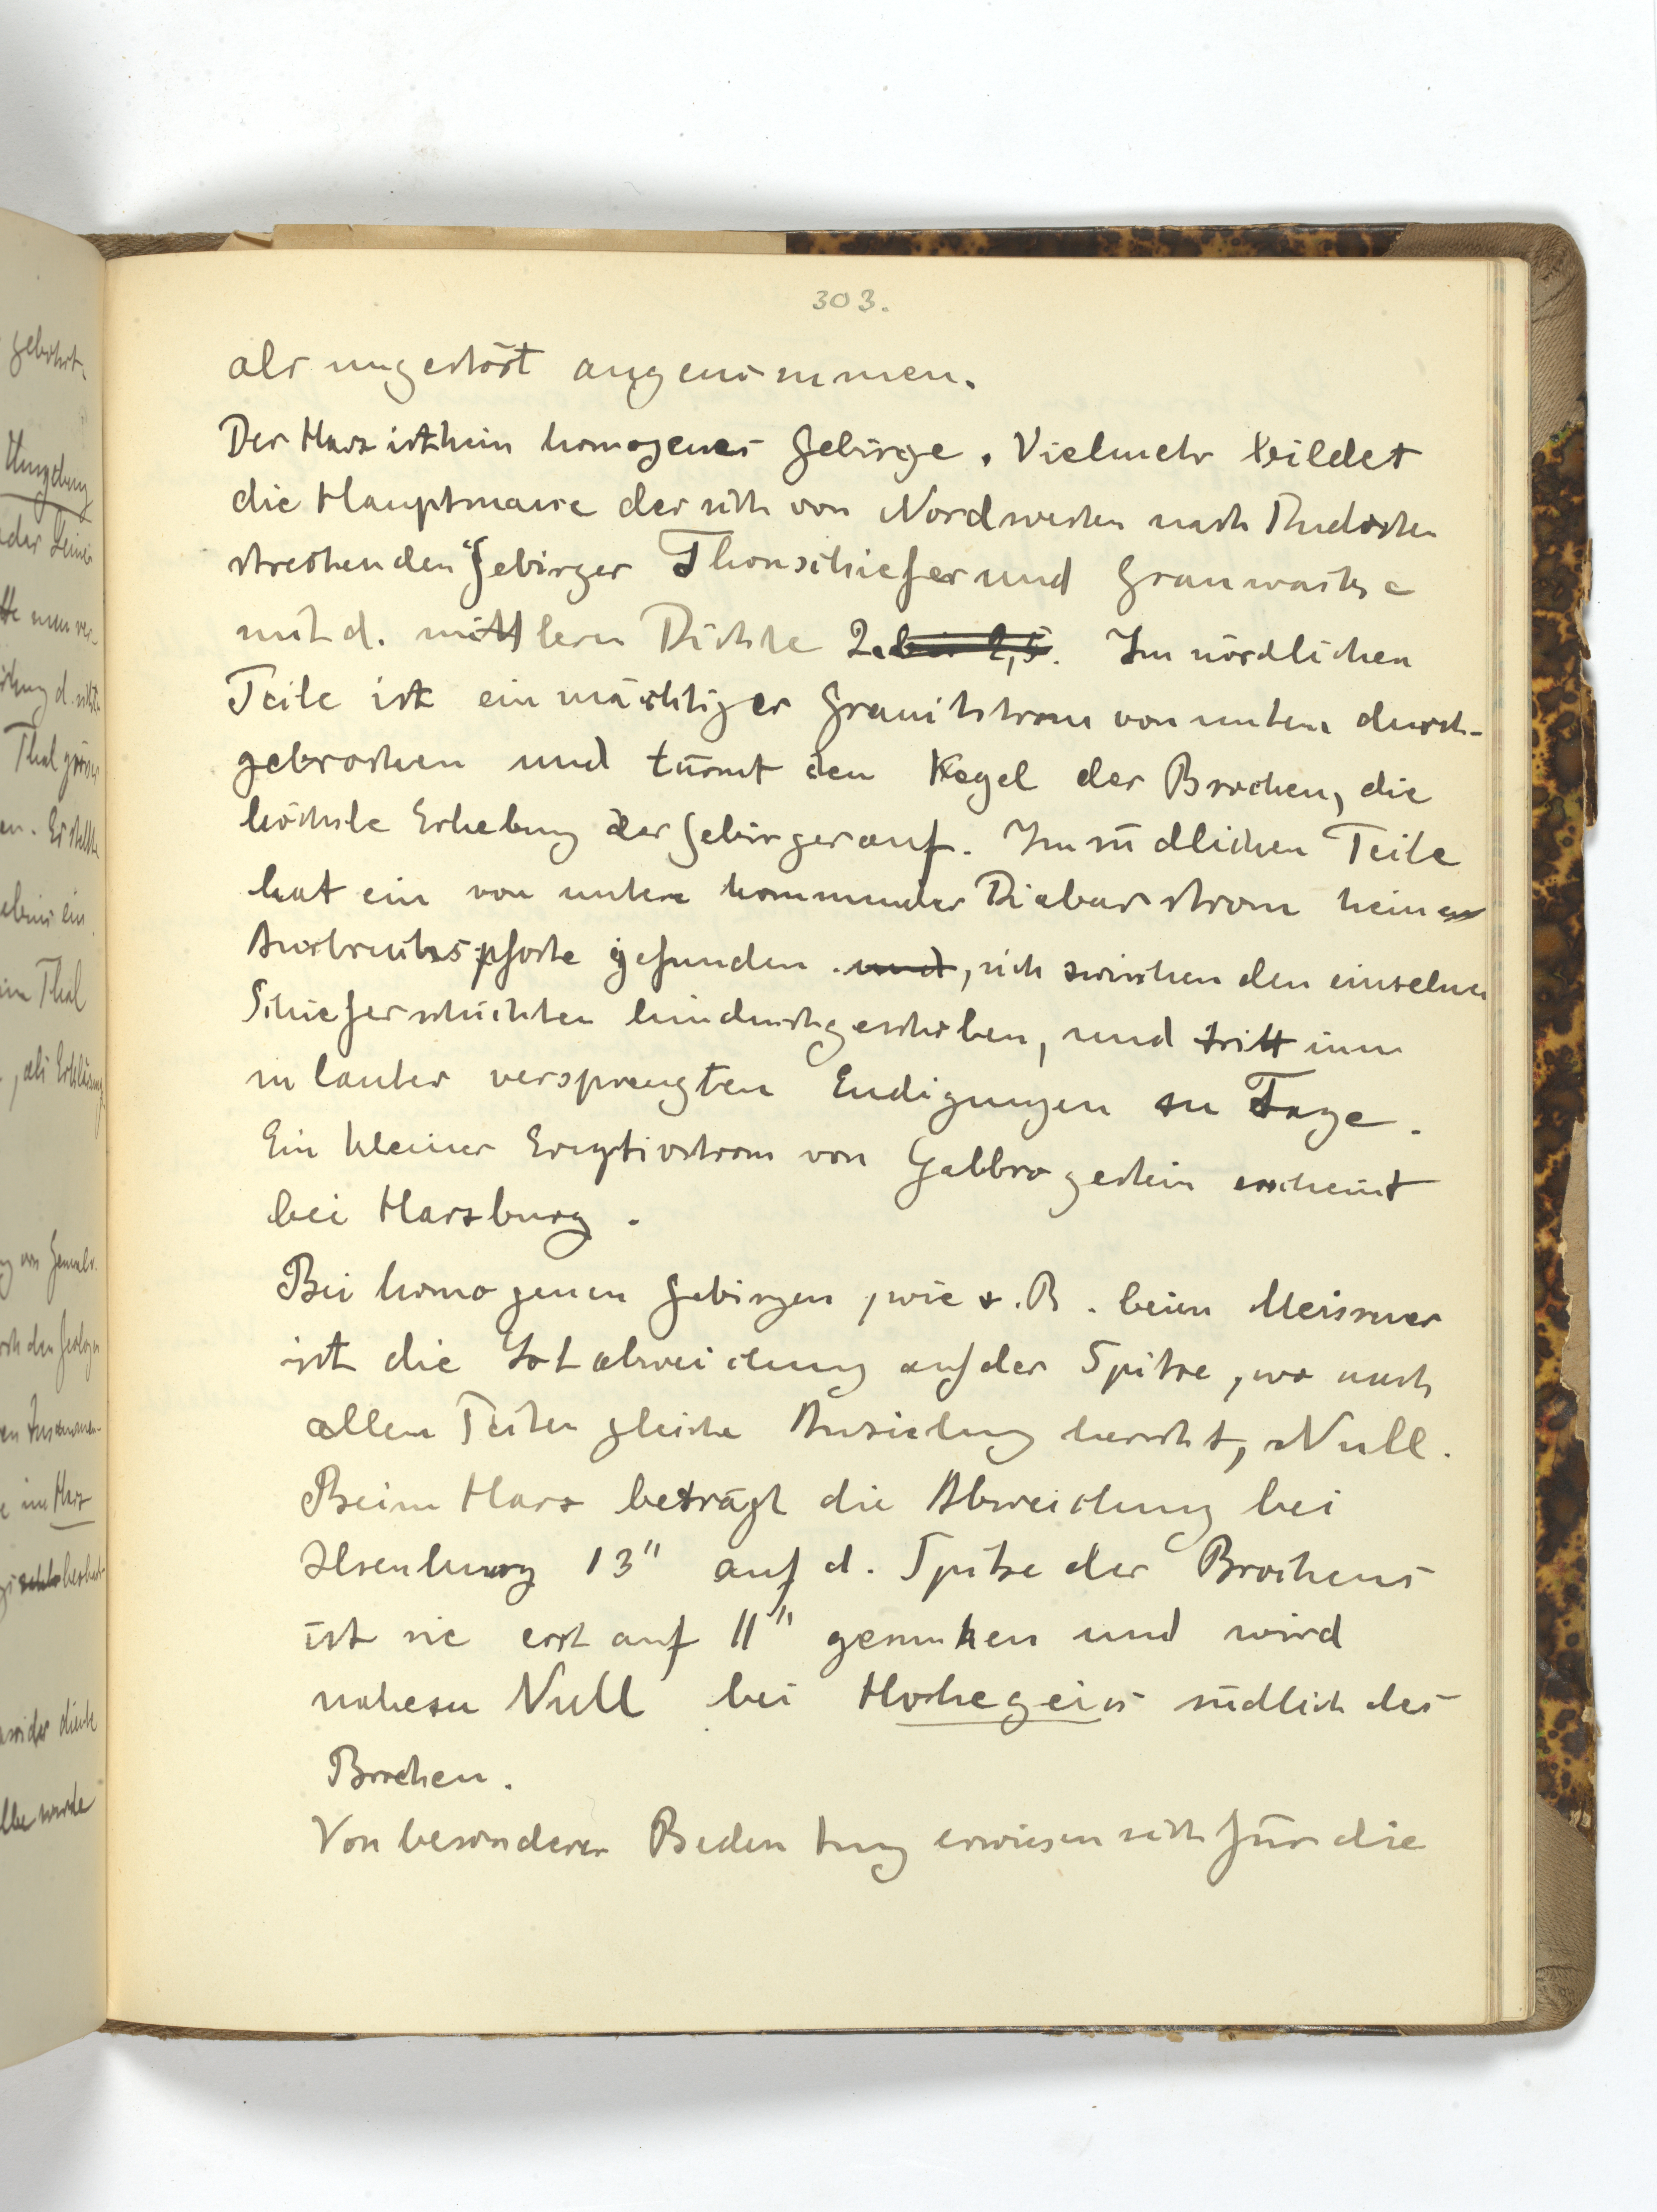 303.
als ungestört angenommen.
Der Harz ist kein homogenes Gebirge. Vielmehr bildet
die Hauptmasse des sich von Nordwesten nach Südosten
streckenden Gebirges Thonschiefer und Grauwacke
mit d. mittlern Dichte 2. bis 2,5. Im nördlichen
Teile ist ein mächtiger Granitstrom von unten durch-
gebrochen und türmt den Kegel des Brocken, die
höchste Erhebung des Gebirges auf. Im südlichen Teile
hat ein von unten kommender Diabasstrom keine
Ausbruchspforte gefunden und, sich zwischen den einzelnen
Schieferschichten hindurchgeschoben, und tritt nun
in lauter versprengten Endigungen zu Tage.
Ein kleiner Eruptivstrom von Gabbrogestein erscheint
bei Harzburg.
Bei homogenen Gebirgen, wie z.B. beim Meissner
ist die Lotabweichung auf der Spitze, wo nach
allen Seiten gleiche Anziehung herrscht, Null.
Beim Harz beträgt die Abweichung bei
Ilsenburg 13" auf d. Spitze des Brockens
ist sie erst auf 11" gesunken und wird
nahezu Null bei Hohegeiss südlich des
Brocken.
Von besonderer Bedeutung erwiesen sich für die